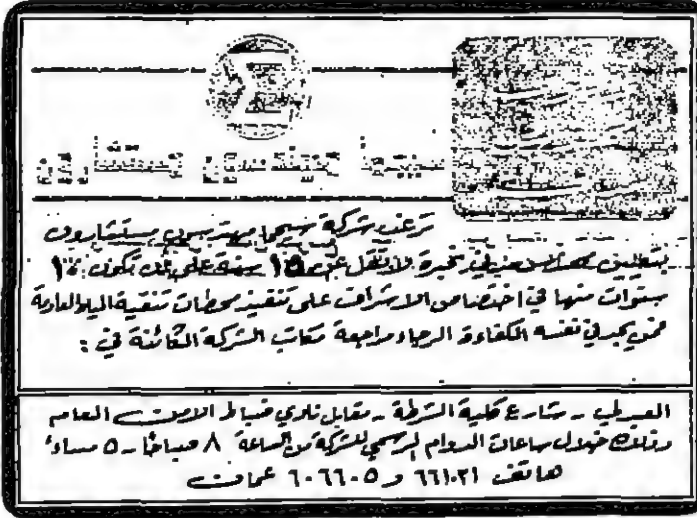 سيجما مهندسون مستشارون
ترغب شركة سيجما مهندسون مستشارون
بتعيين مهندس مدني بخبرة لا تقل عن ١٥ سنة على أن تكون ١٠
سنوات منها في اختصاص الاشراف على تنفيذ محطات تنقية المياه العادمة
فمن يجد في نفسه الكفاءة الرجاء مراجعة مكاتب الشركة الكائنة في :
العبدلي - شارع كلية الشرطة - مقابل نادي ضباط الامن العام
وذلك خلال ساعات الدوام الرسمي للشركة من الساعة ٨ صباحًا - ٥ مساءً
هاتف ٦٦١٠٢١ و ٦٠٦٦٠٥ عمان